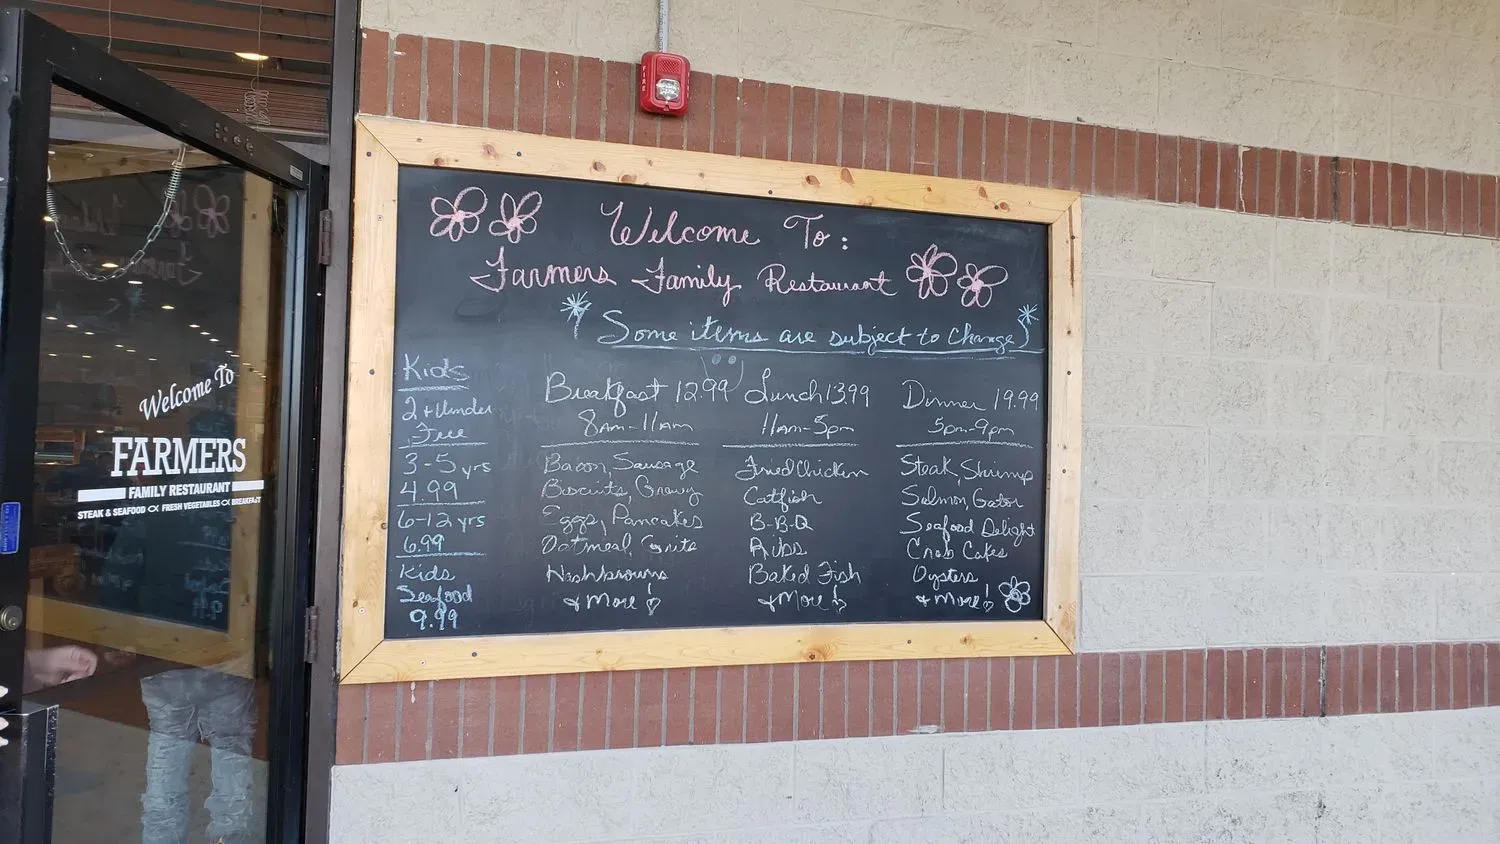 Welcome To
FARMERS
FAMILY RESTAURANT
STEAK & SEAFOOD FRESH VEGETABLES BREAKFAST
FIRE
Welcome To:
Farmers Family Restaurant
* Some items are subject to Change) *
Kids
2 + Under
Free
3-5 yrs
4.99
6-12 yrs
6.99
Kids
Seafood
9.99
Breakfast 12.99
8am-11am
Bacon, Sausage
Biscuits, Gravy
Eggs, Pancakes
Oatmeal, Grits
Hashbrowns
& More!
Lunch 13.99
11am-5pm
Fried Chicken
Catfish
B-B-Q
Ribs
Baked Fish
& More!
Dinner 19.99
5pm-9pm
Steak, Shrimp
Salmon, Gator
Seafood Delight
Crab Cakes
Oysters
& More!